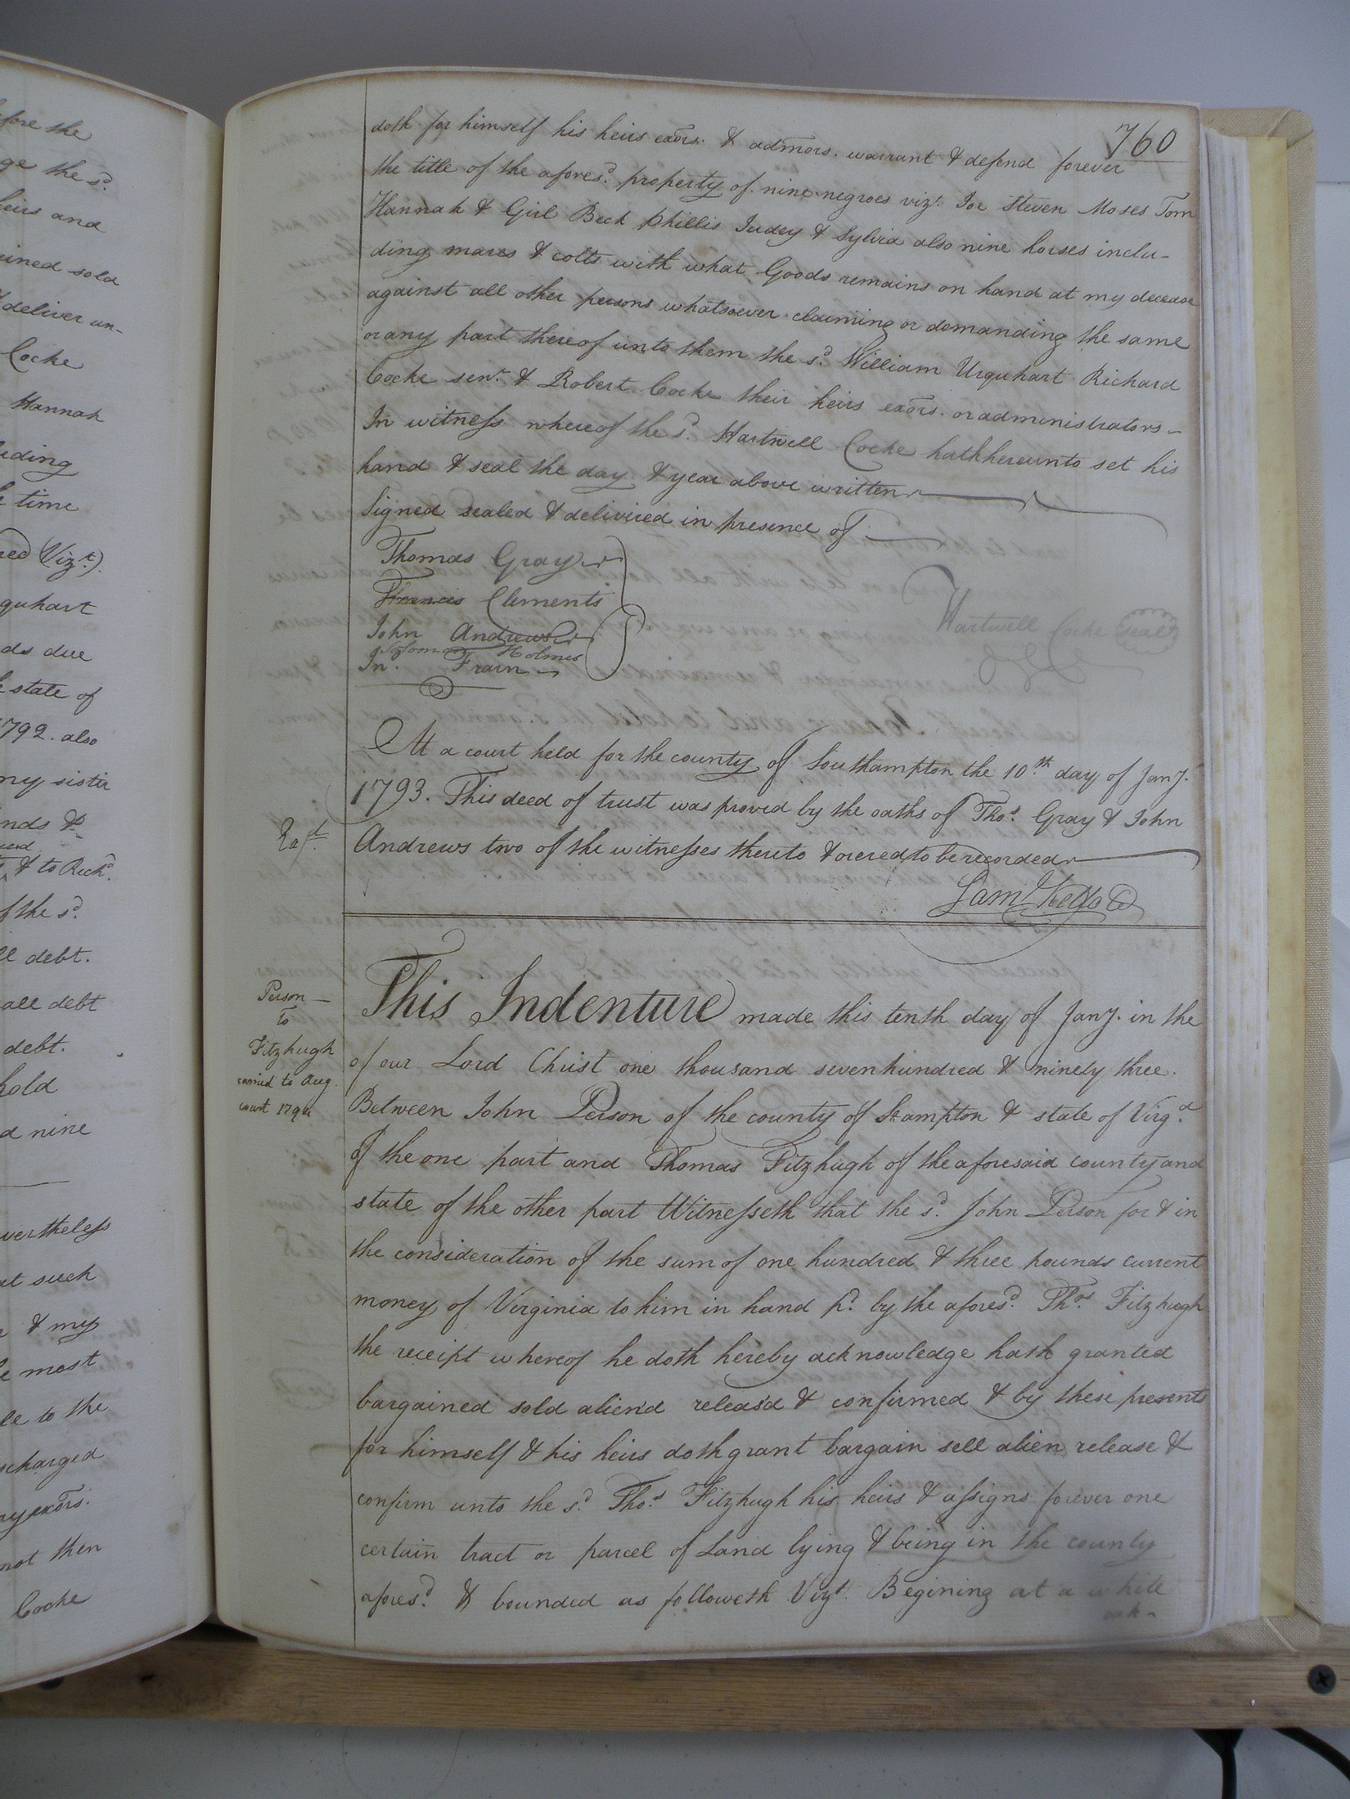 fore the
ge the sd.
heirs and
ained sold
deliver un-
Cocke
Hannah
uding
time
red Vizt.)
quhart
ds due
state of
1792. also
my sister
nds &
& to Richd.
of the sd.
ll debt.
all debt
debt.
hold
d nine
vertheless
at such
& my
most
le to the
scharged
my exors.
not then
Cocke
760
doth for himself his heirs exors. & admors. warrant & defend forever
the title of the aforesd. property of nine negroes vizt. Joe Steven Moses Tom
Hannah & Girl Beck Phillis Judey & Sylvia also nine horses inclu-
ding mares & colts with what Goods remains on hand at my decease
against all other persons whatsoever claiming or demanding the same
or any part thereof unto them the sd. William Urquhart Richard
Cocke senr. & Robert Cocke their heirs exors. or administrators -
In witness whereof the sd. Hartwell Cocke hath hereunto set his
hand & seal the day & year above written
Signed sealed & delivered in presence of
Thomas Gray
Francis Clements
John Andrews
Solomon Holmes
Jno. Frain
Hartwell Cocke seal
At a court held for the county of Southampton the 10th. day of Jany.
1793. This deed of trust was proved by the oaths of Thos. Gray & John
Andrews two of the witnesses thereto & orered to be recorded
Saml. Kello
Person
to
Fitzhugh
carried to Aug.
court
This Indenture made this tenth day of Jany. in the
of our Lord Christ one thousand sevenhundred & ninety three.
Between John Person of the county of Stampton & state of Virga.
of the one part and Thomas Fitzhugh of the aforesaid county and
state of the other part Witnesseth that the sd. John Person for & in
the consideration of the sum of one hundred & three pounds current
money of Virginia to him in hand pd. by the aforesd. Thos. Fitzhugh
the receipt whereof he doth hereby acknowledge hath granted
bargained sold aliend releasd & confirmed & by these presents
for himself & his heirs doth grant bargain sell alien release &
confirm unto the sd. Thos. Fitzhugh his heirs & assigns forever one
certain tract or parcel of Land lying & being in the county
aforesd. & bounded as followeth Vizt. Begining at a white
oak -